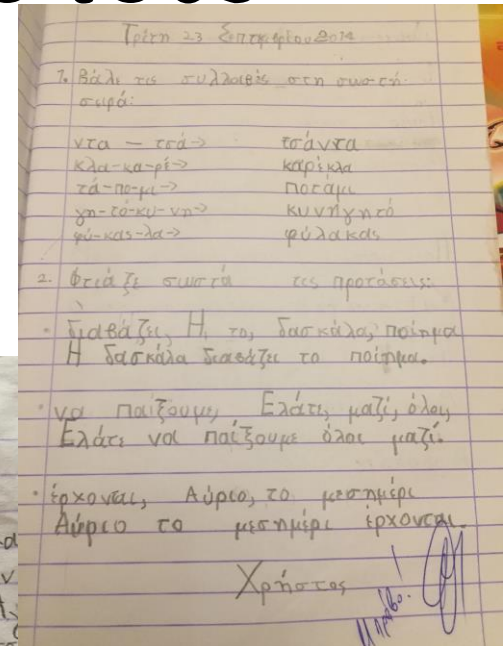 Τρίτη 23 Σεπτεμβρίου 2014
1. Βάλε τις συλλαβές στη σωστή
σειρά:
ντα – τσά-> τσάντα
κλα-κα-ρέ-> καρέκλα
τά-πο-μι-> ποτάμι
γη-τό-κυ-νη-> κυνήγητό
φύ-κας-λα-> φύλακας
2. Φτιάξε σωστά τις προτάσεις:
• διαβάζει, Η, το, δασκάλα, ποίημα
Η δασκάλα διαβάζει το ποίημα.
• να παίξουμε, Ελάτε, μαζί, όλοι,
Ελάτε να παίξουμε όλοι μαζί.
• έρχονται, Αύριο, το μεσημέρι
Αύριο το μεσημέρι έρχονται.
Χρήστος
Μπράβο!